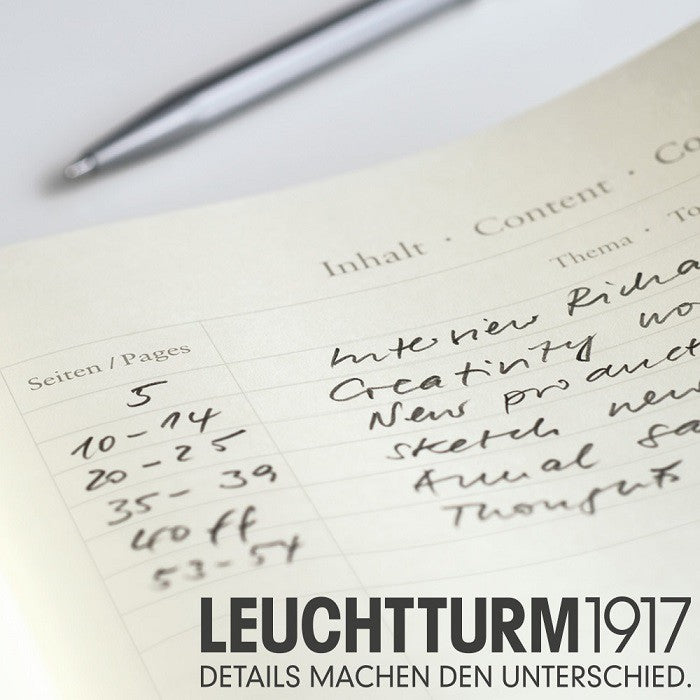 Inhalt · Content · Co
Thema · To
Seiten / Pages
5 Interview Richa
10 - 14 Creativity wo
20 - 25 New product
35 - 39 sketch new
40 ff Annual sa
53 - 54 Thoughts
LEUCHTTURM1917
DETAILS MACHEN DEN UNTERSCHIED.